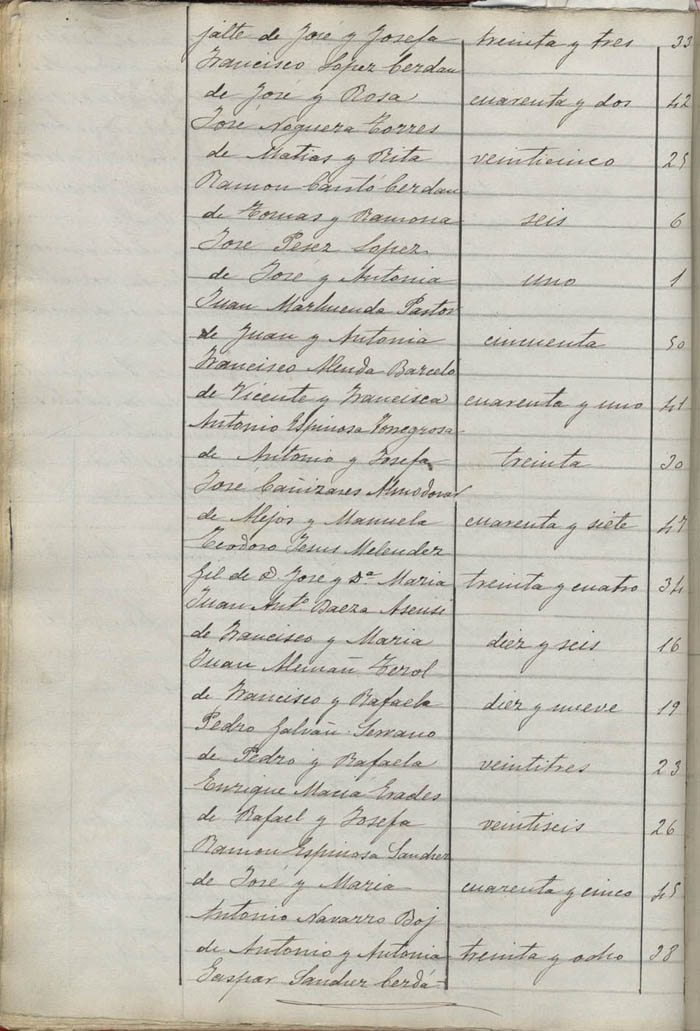 jalte de José y Josefa treinta y tres 33
Francisco Lopez Cerdan
de José y Rosa cuarenta y dos 42
José Noguera Torres
de Matias y Rita veinticinco 25
Ramon Cantó Cerdan
de Tomas y Ramona seis 6
José Perez Lopez
de José y Antonia uno 1
Juan Marhuenda Pastor
de Juan y Antonia cincuenta 50
Francisco Alenda Barceló
de Vicente y Francisca cuarenta y uno 41
Antonio Espinosa Torregrosa
de Antonio y Josefa treinta 30
José Cañizares Almodovar
de Alejos y Manuela cuarenta y siete 47
Teodoro Jesus Melendez
Gil de D. Jose y Dª Maria treinta y cuatro 34
Juan Antº Baeza Asensi
de Francisco y Maria diez y seis 16
Juan Alemañ Terol
de Francisco y Rafaela diez y nueve 19
Pedro Galvañ Serrano
de Pedro y Rafaela veintitres 23
Enrique Maciá Erades
de Rafael y Josefa veintiseis 26
Ramon Espinosa Sanchez
de José y Maria cuarenta y cinco 45
Antonio Navarro Boj
de Antonio y Antonia treinta y ocho 38
Gaspar Sanchez Cerdá